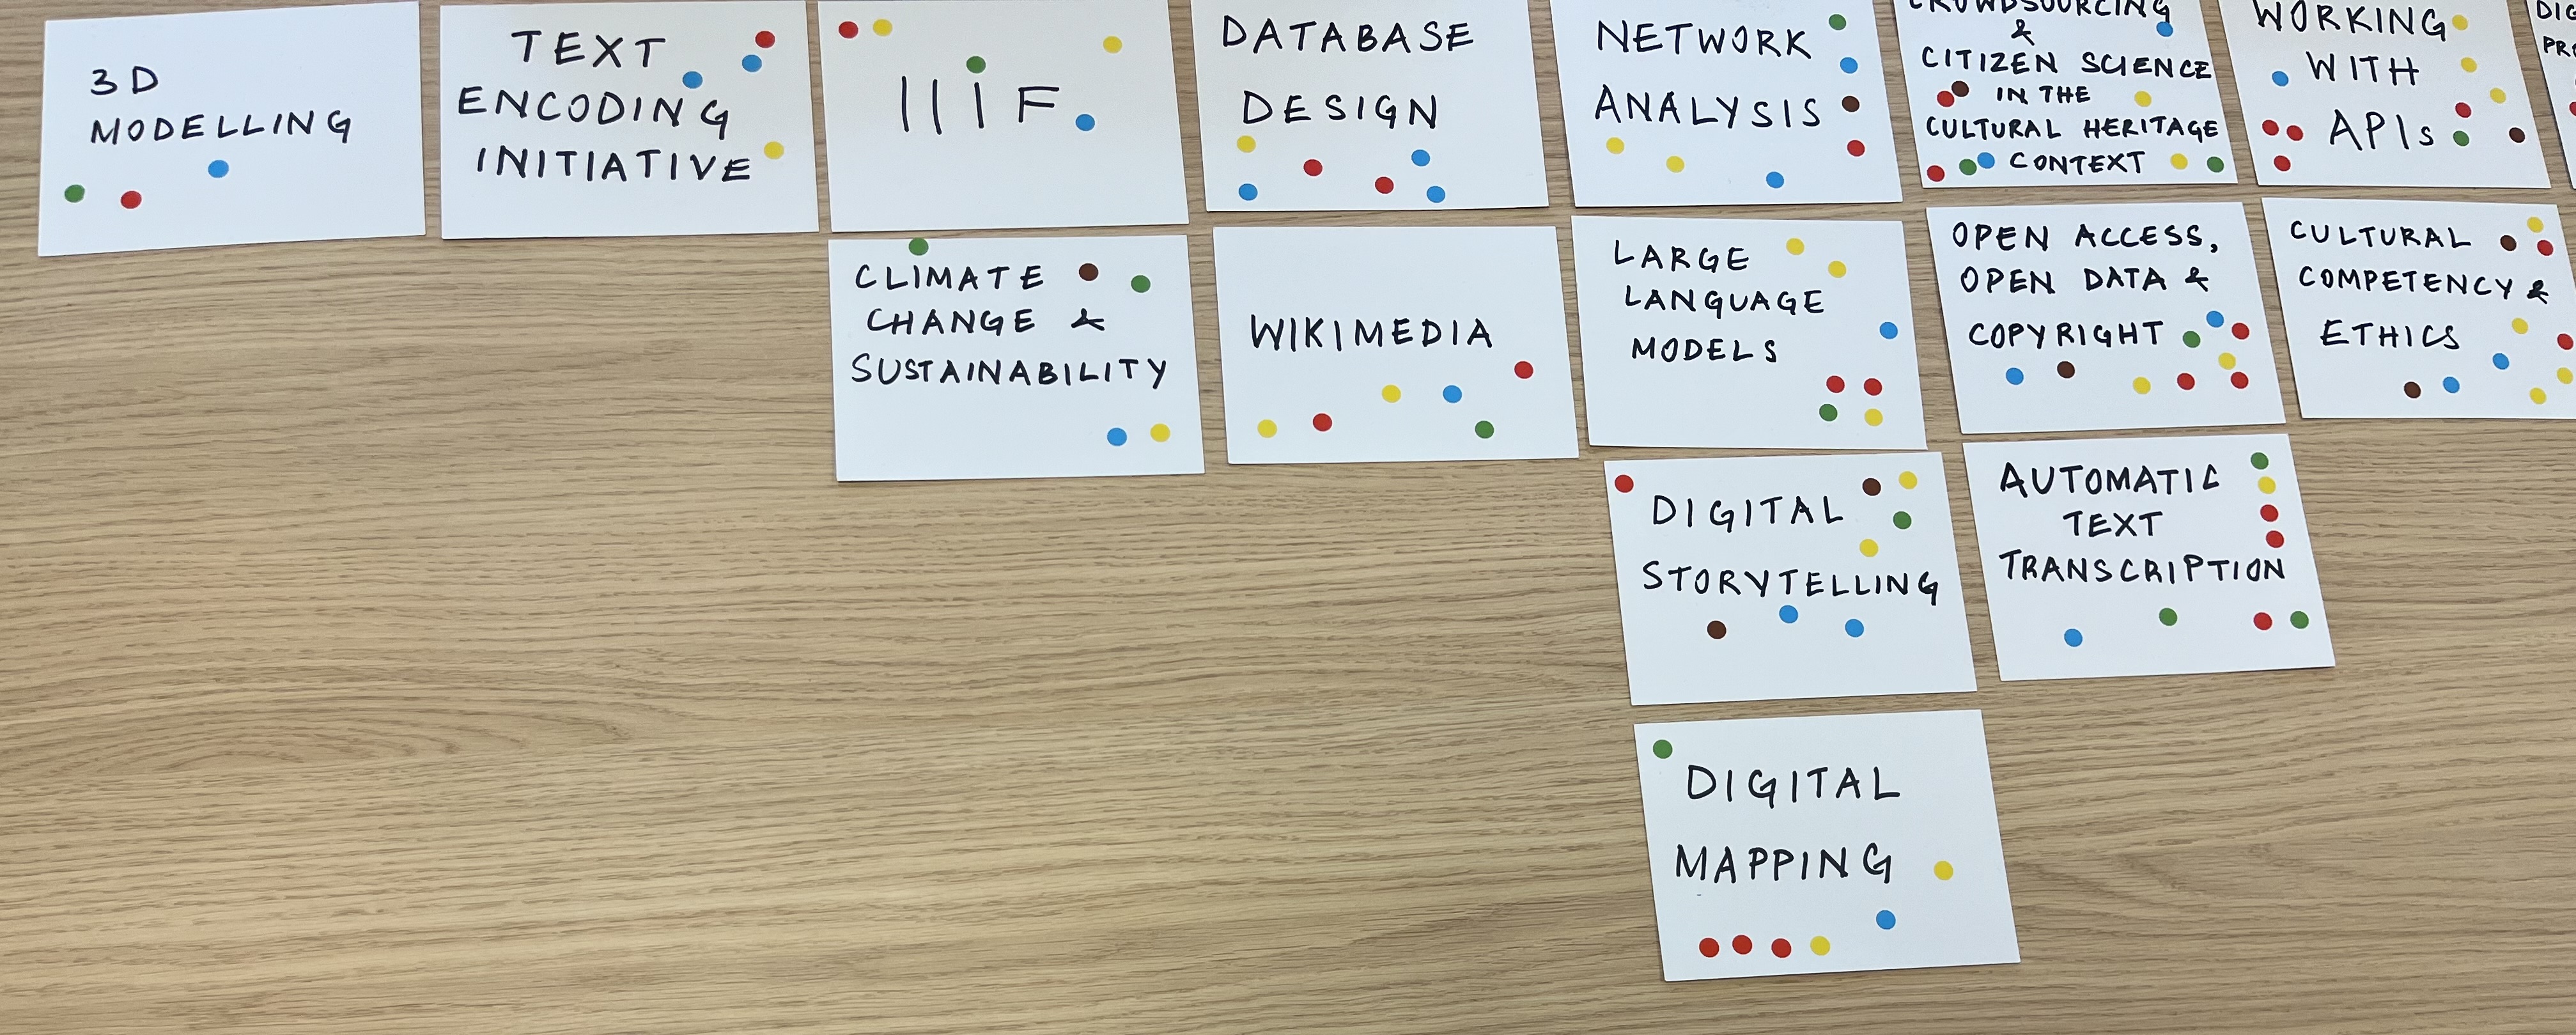 3D
MODELLING
TEXT
ENCODING
INITIATIVE
IIIF
DATABASE
DESIGN
NETWORK
ANALYSIS
CROWDSOURCING
&
CITIZEN SCIENCE
IN THE
CULTURAL HERITAGE
CONTEXT
WORKING
WITH
APIs
CLIMATE
CHANGE &
SUSTAINABILITY
WIKIMEDIA
LARGE
LANGUAGE
MODELS
OPEN ACCESS,
OPEN DATA &
COPYRIGHT
CULTURAL
COMPETENCY &
ETHICS
DIGITAL
STORYTELLING
AUTOMATIC
TEXT
TRANSCRIPTION
DIGITAL
MAPPING